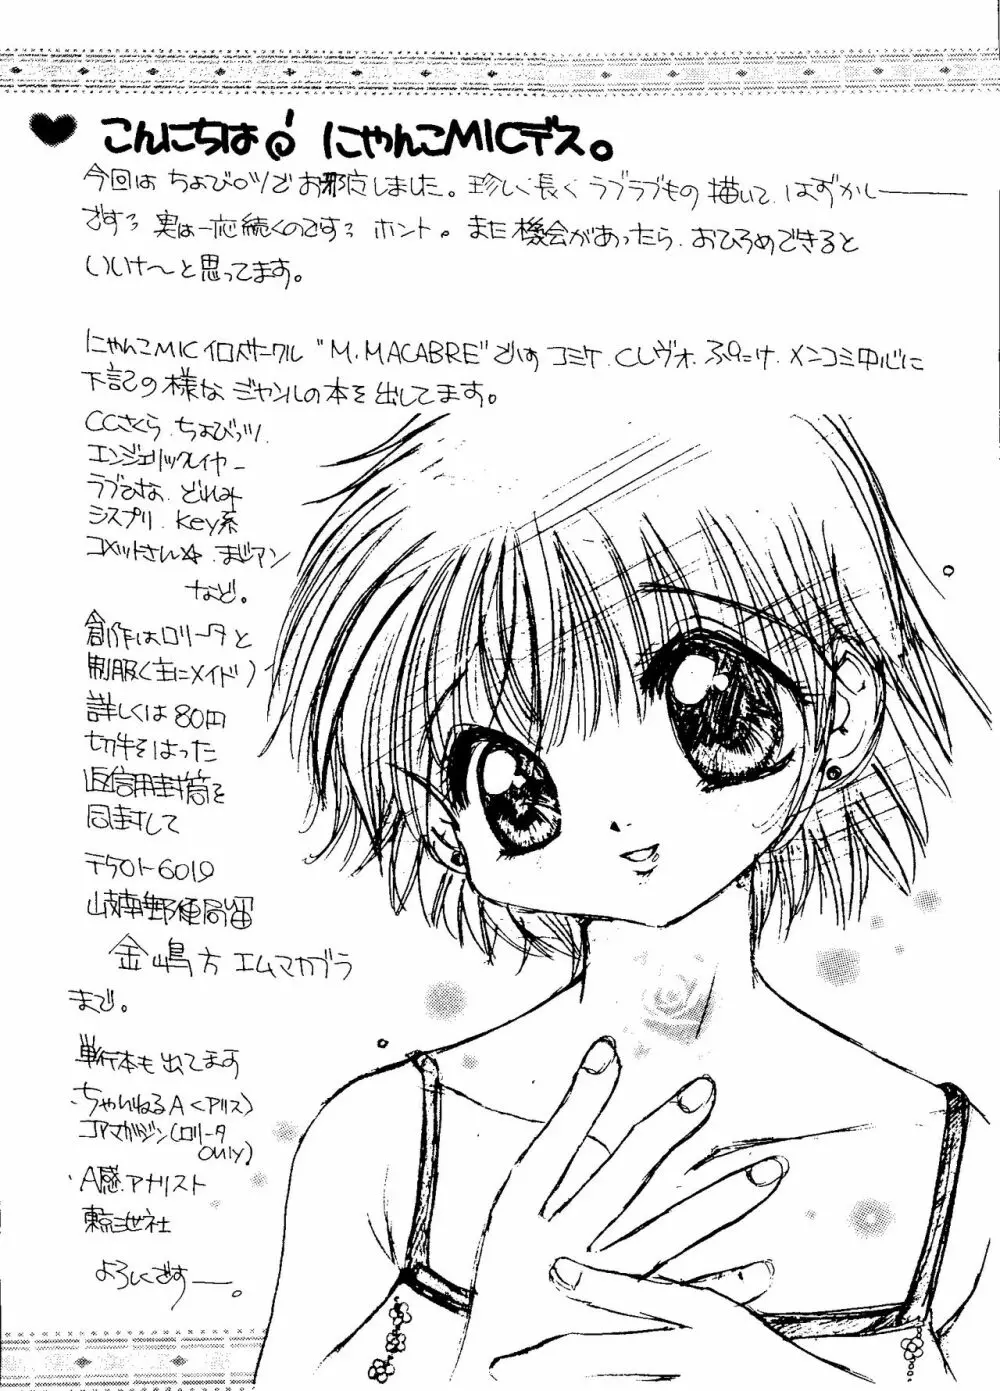 こんにちは♪ にゃんこMICデス。
今回は ちょびッツで お邪魔しました。珍しく長く ラブラブもの 描いて はずかしー
ですっ 実は一応続くのですっ ホント。また 機会があったら おひろめできると
いいけ〜と思ってます。
にゃんこMIC サークル "M.MACABRE" では コミケ. CLヴォ. ぷにけ. メンコミ中心に
下記の様な ジャンルの本を出してます。
CCさくら. ちょびっツ.
エンジェリックレイヤー
ラブひな. どれみ
シスプリ. Key系
コメットさん☆. まじアン
など。
創作はロリータと
制服(主にメイド)
詳しくは80円
切手をはった
返信用封筒を
同封して
郵便局留
金嶋方 エムマカブラ
まで。
単行本も出てます
・ちゃいねるA〈アリス〉
コアマガジン(ロリータ
only)
・A感.アナリスト
東京三世社
よろしくですー。